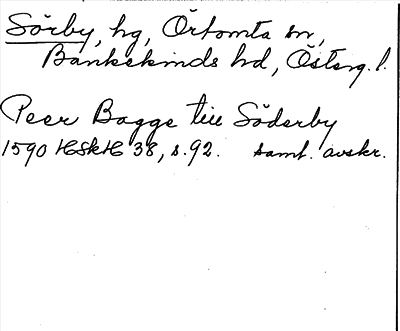 Sörby, hg, Örtomta sn,
Bankekinds hd, Österg. l.
Peer Bagge till Söderby
1590 HSkH 38, s. 92. samt. avskr.